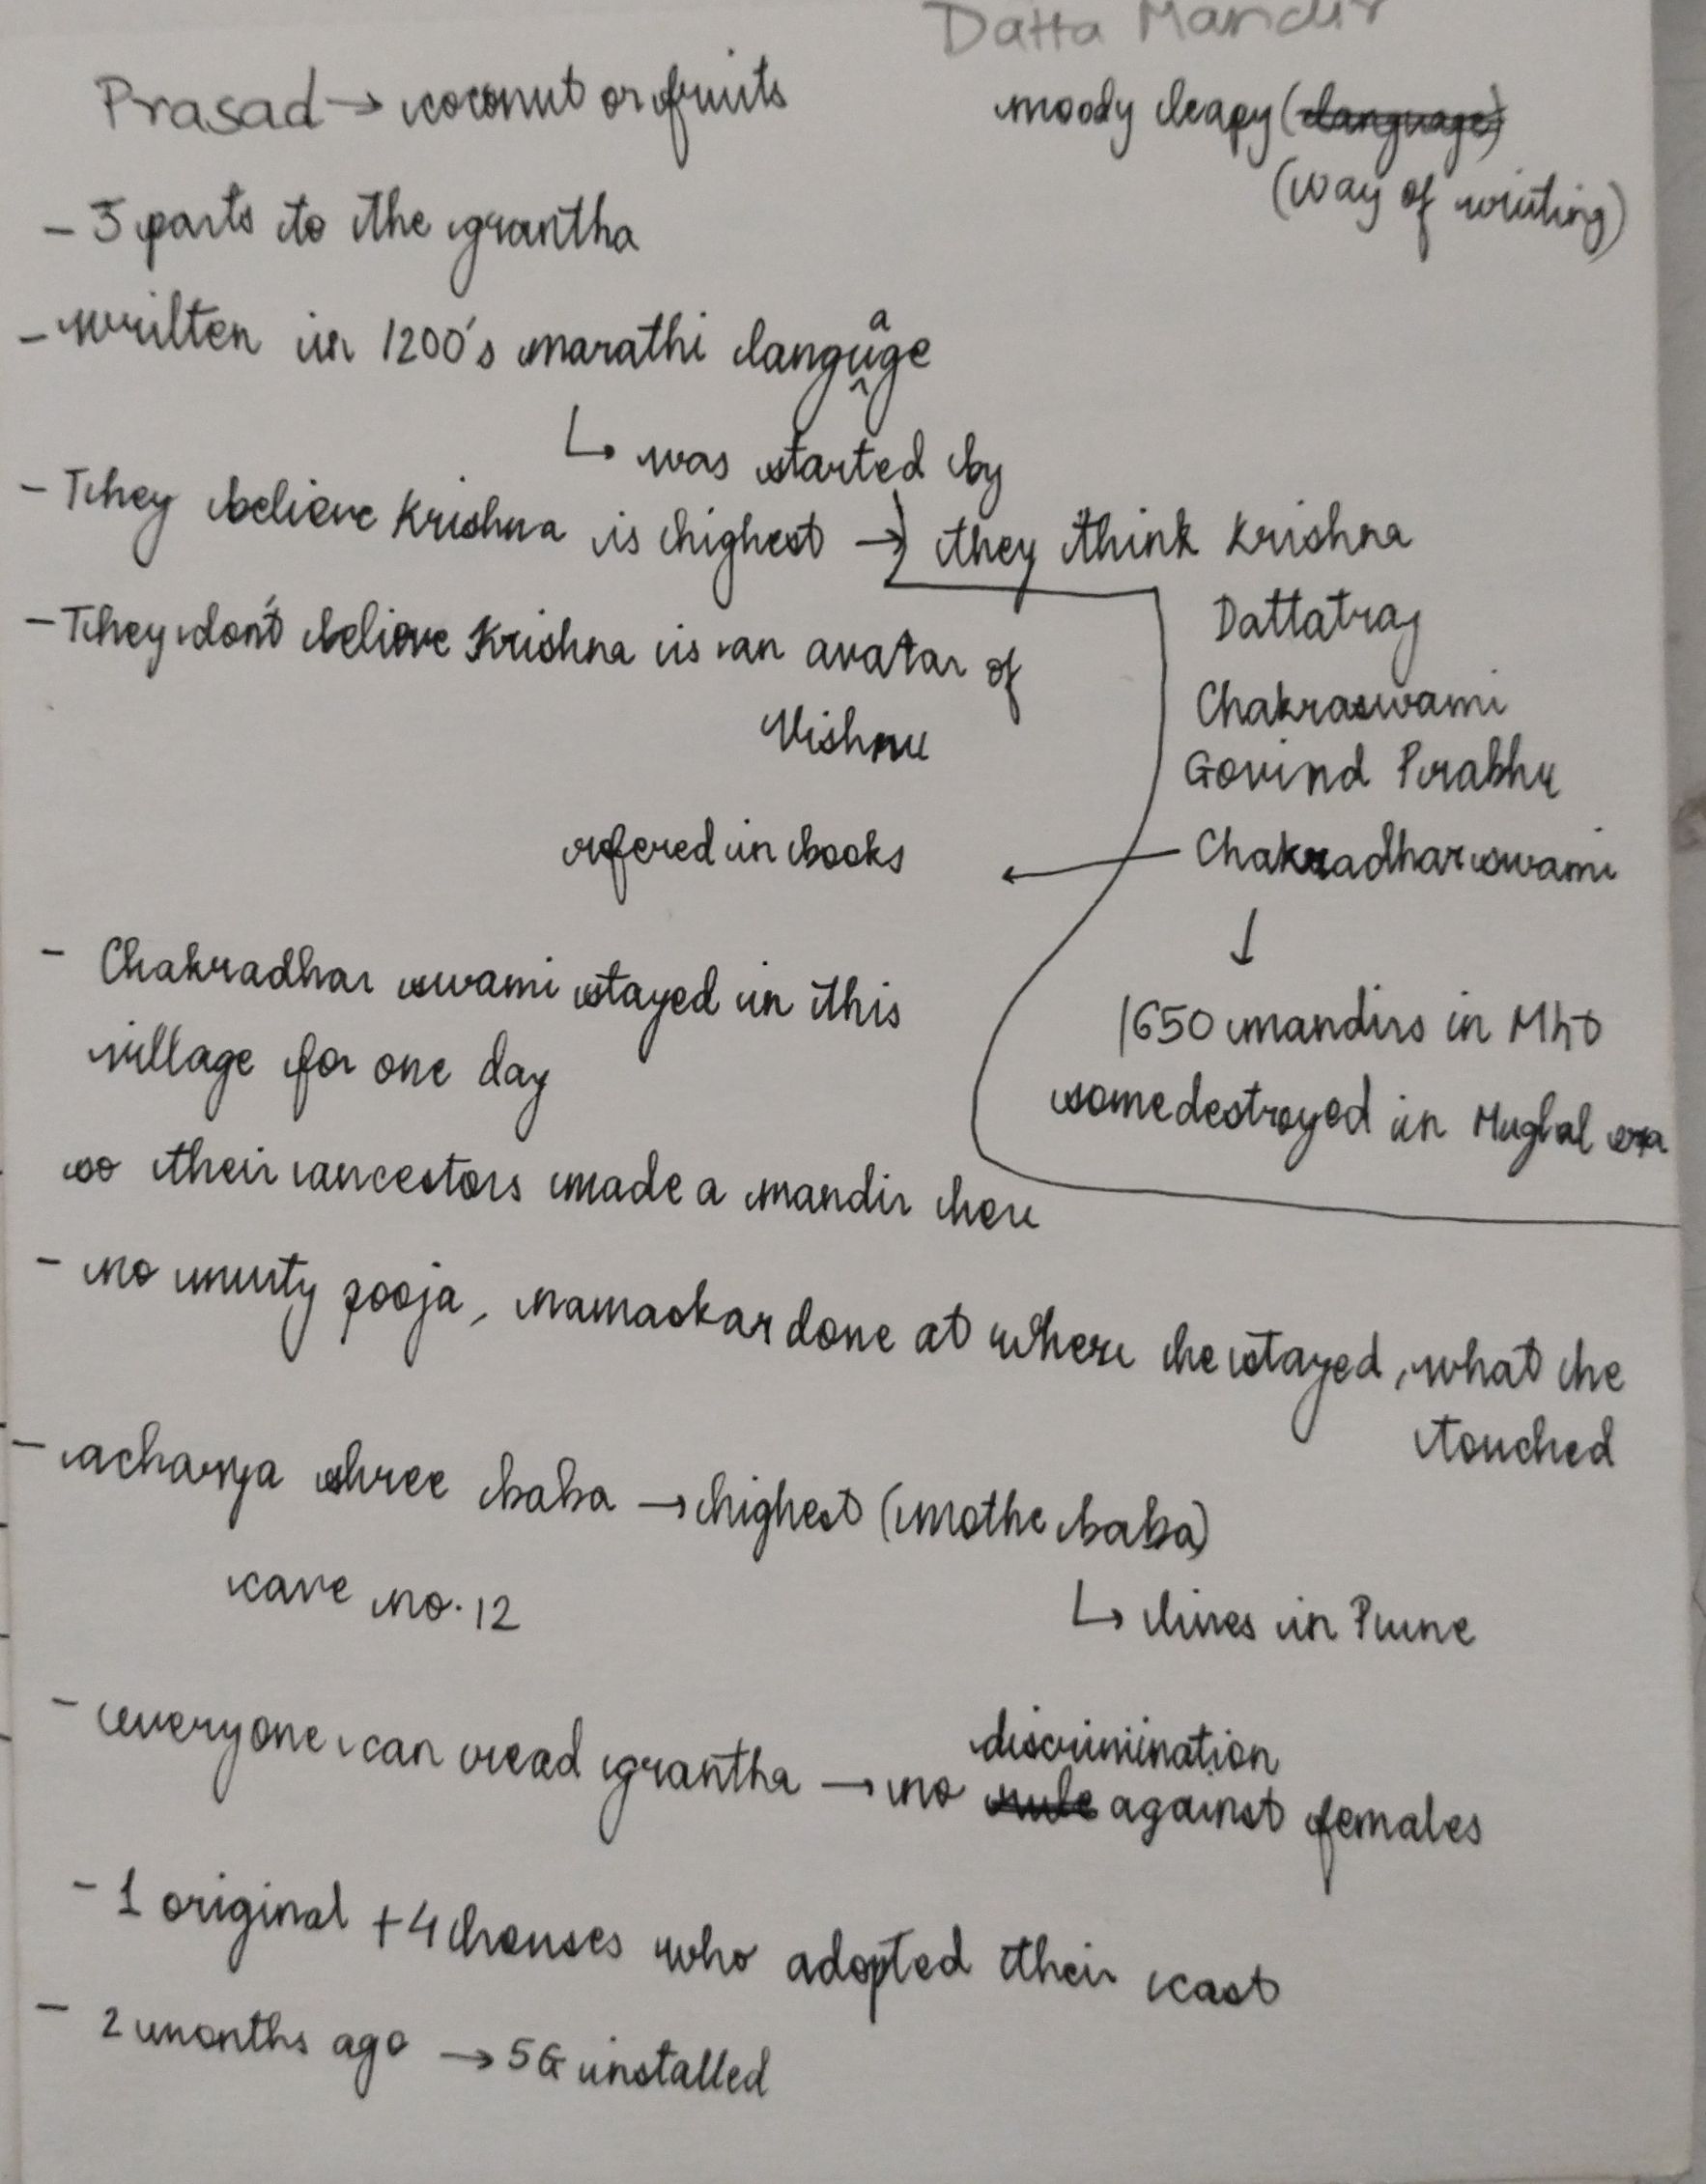 Datta Mandir
Prasad → coconut or fruits
moody leapy (language)
(way of writing)
- 3 parts to the grantha
- written in 1200's marathi language
↳ was started by
- They believe Krishna is highest → they think Krishna
Dattatray
Chakraswami
Govind Prabhu
Chakradhar swami
- They don't believe Krishna is an avatar of
Vishnu
refered in books
↓
1650 mandirs in Mht
some destroyed in Mughal era
- Chakradhar swami stayed in this
village for one day
so their ancestors made a mandir here
- no murty pooja, namaskar done at where he stayed, what he
touched
- acharya shree baba → highest (mothe baba)
↳ lives in Pune
cave no. 12
- everyone can read grantha → no rule discrimination against females
- 1 original + 4 houses who adopted their cast
- 2 months ago → 5G installed